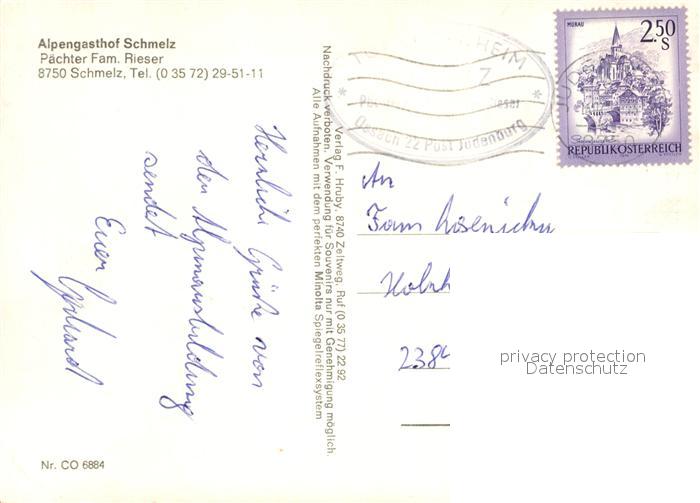 Alpengasthof Schmelz
Pächter Fam. Rieser
8750 Schmelz, Tel. (0 35 72) 29-51-11
Herzliche Grüße von
der Alpinausbildung
sendet
Euer Gerhard
Nr. CO 6884
Verlag F. Hruby, 8740 Zeltweg, Ruf (0 35 77) 22 92
Nachdruck verboten. Verwendung für Souvenirs nur mit Genehmigung möglich.
Alle Aufnahmen mit dem perfekten Minolta Spiegelreflexsystem
HEIM
Z
Gasach 22 Post Judenburg
MURAU
2.50
S
REPUBLIK ÖSTERREICH
JUDE
An
Fam
238
privacy protection
Datenschutz